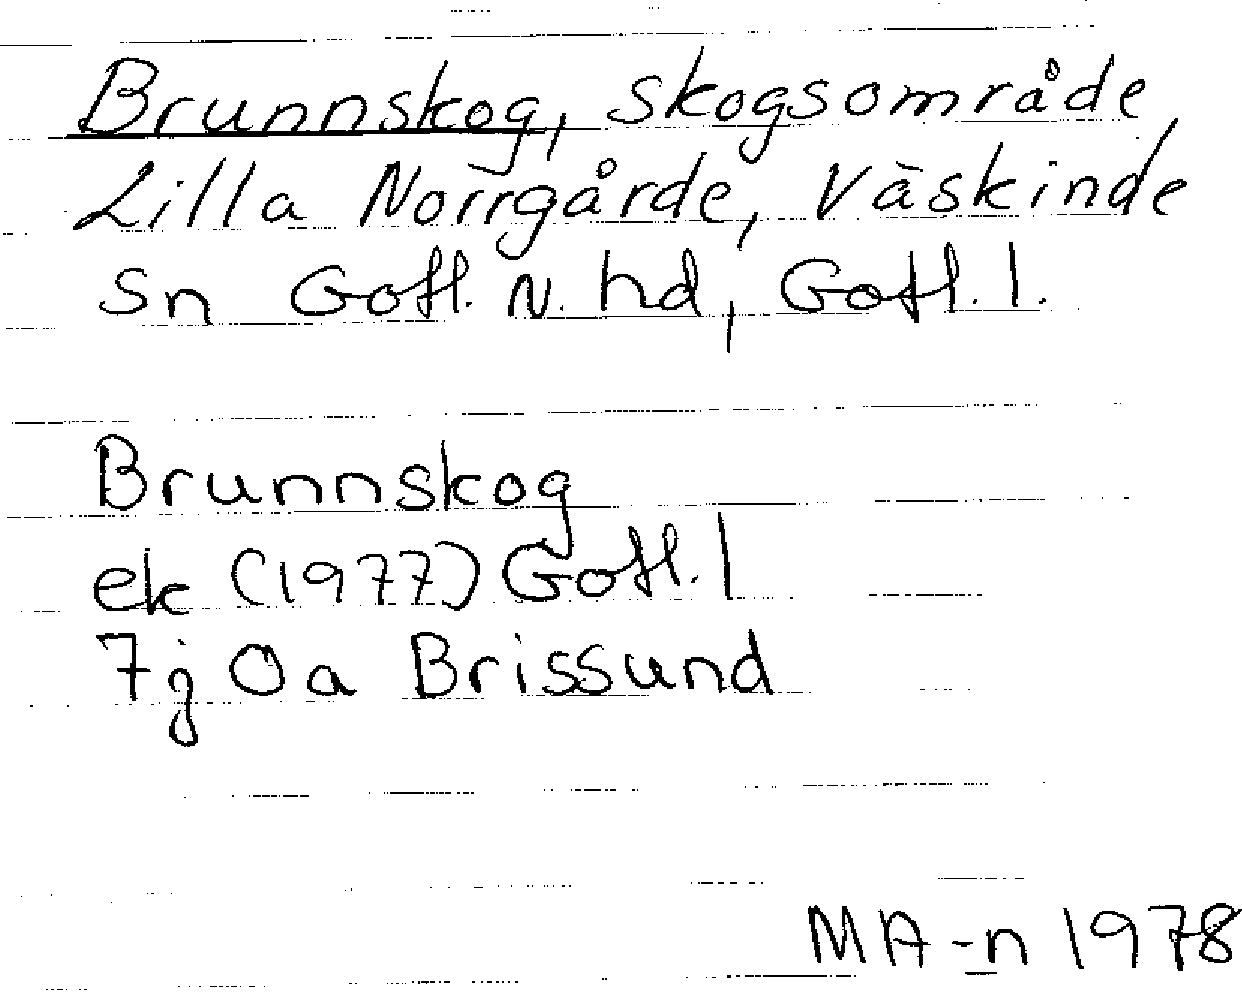 Brunnskog, skogsområde,
Lilla Norrgårde, Väskinde
sn Gotl. N. hd, Gotl. l.
Brunnskog
ek (1977) Gotl. l
7j 0a Brissund
MA-n 1978